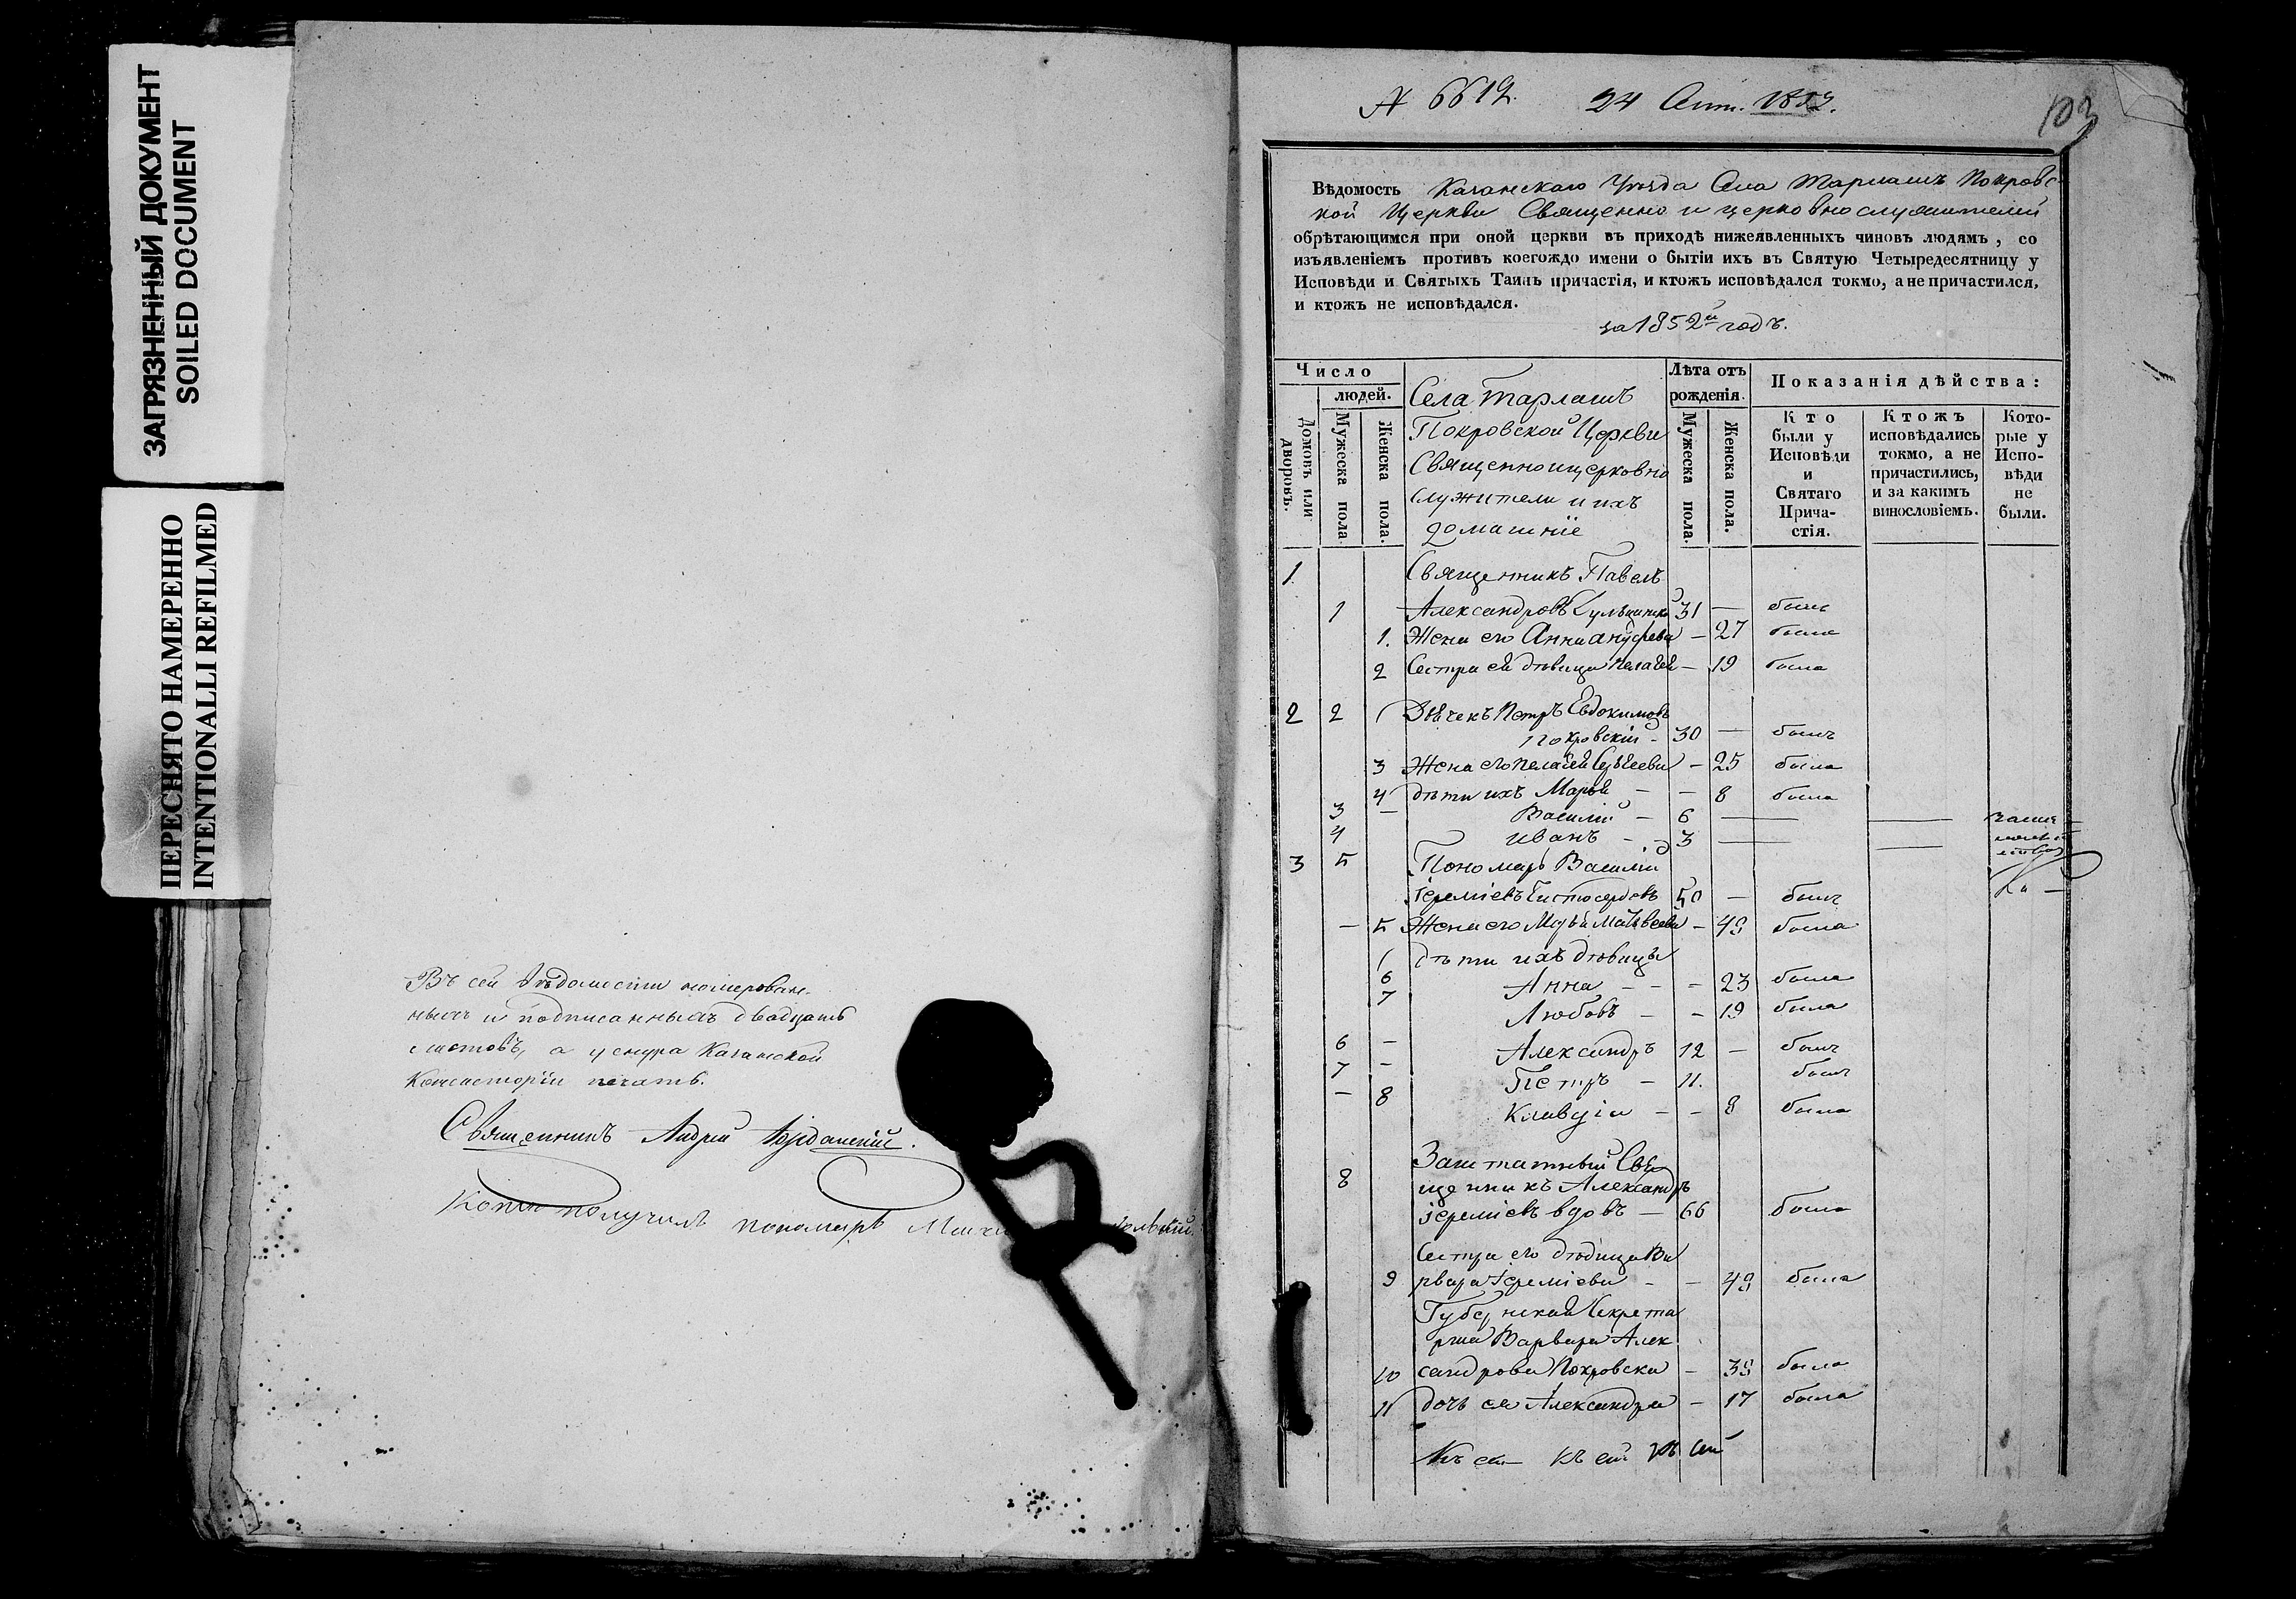 ЗАГРЯЗНЕННЫЙ ДОКУМЕНТ
SOILED DOCUMENT
ПЕРЕСНЯТО НАМЕРЕННО
INTENTIONALLI REFILMED
Въ сей вѣдомости номерован-
ныхъ и подписанныхъ двадцать
листовъ, а у снура Казанской
Консисторіи печать.
Священникъ Андрей
Копію получилъ пономарь
№ 6612. 24 Сент. 1853.
103
Вѣдомость Казанскаго Уѣзда Села Тарлашъ Покровс-
кой Церкви Священно и церковнослужителей
обрѣтающимся при оной церкви въ приходѣ нижеявленныхъ чиновъ людямъ, со
изъявленіемъ противъ коегождо имени о бытіи ихъ въ Святую Четыредесятницу у
Исповѣди и Святыхъ Таинъ причастія, и ктожъ исповѣдался токмо, а не причастился,
и ктожъ не исповѣдался.
за 1852й годъ.
Число
людей.
Домовъ или дворовъ.
Мужеска пола
Женска пола.
Села Тарлашъ
Покровской Церкви
Священно и церковно
служители и ихъ
домашніе
Лѣта отъ
рожденія.
Мужеска пола.
Женска пола.
Показанія дѣйства:
Кто
были у
Исповѣди
и
Святаго
Прича-
стія.
Ктожъ
исповѣдались
токмо, а не
причастились,
и за какимъ
винословіемъ.
Кото-
рые у
Испо-
вѣди
не
были.
1 Священникъ Павелъ
1 Александровъ 31 — былъ
1. Жена его Анна Андреева — 27 была
2 Сестра ея дѣвица Пелагея — 19 была
2 2 Дьячекъ Петръ Евдокимовъ
Покровскій — 30 — былъ
3 Жена его Пелагея Сергѣева — 25 была
4 дѣти ихъ Марья — — 8 была
3 — Василій — 6 —
4 Иванъ — 3 —
3 5 Пономарь Василій
Іереміевъ 50 — былъ
— 5 Жена его Марья Матвѣева — 49 была
дѣти ихъ дѣвицы
6 Анна — — — 23 была
7 Любовь — — 19 была
6 — Александръ 12 — былъ
7 — Петръ — 11. былъ
— 8 Клавдія — — 8 была
Заштатный Свя
8 щенникъ Александръ
Іереміевъ вдовъ — 66
Сестра его дѣвица Ва
9 рвара Іереміева — — 49 была
Губернская Секрета
рша Варвара Алек
10 сандрова Покровска — 39 была
11 дочь ея Александра — 17 была